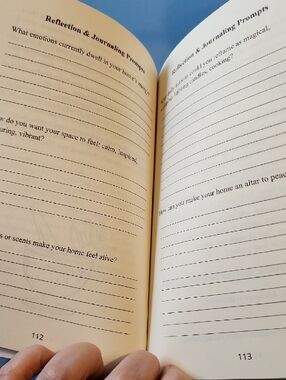 Reflection & Journaling Prompts
What emotions currently dwell in your home's
do you want your space to feel: calm, inspired,
vibrant?
or scents make your home feel alive?
112
Reflection & Journaling Prompts
could you reframe as magical,
lighting candles, cooking?
How can you make your home an altar to peace
113